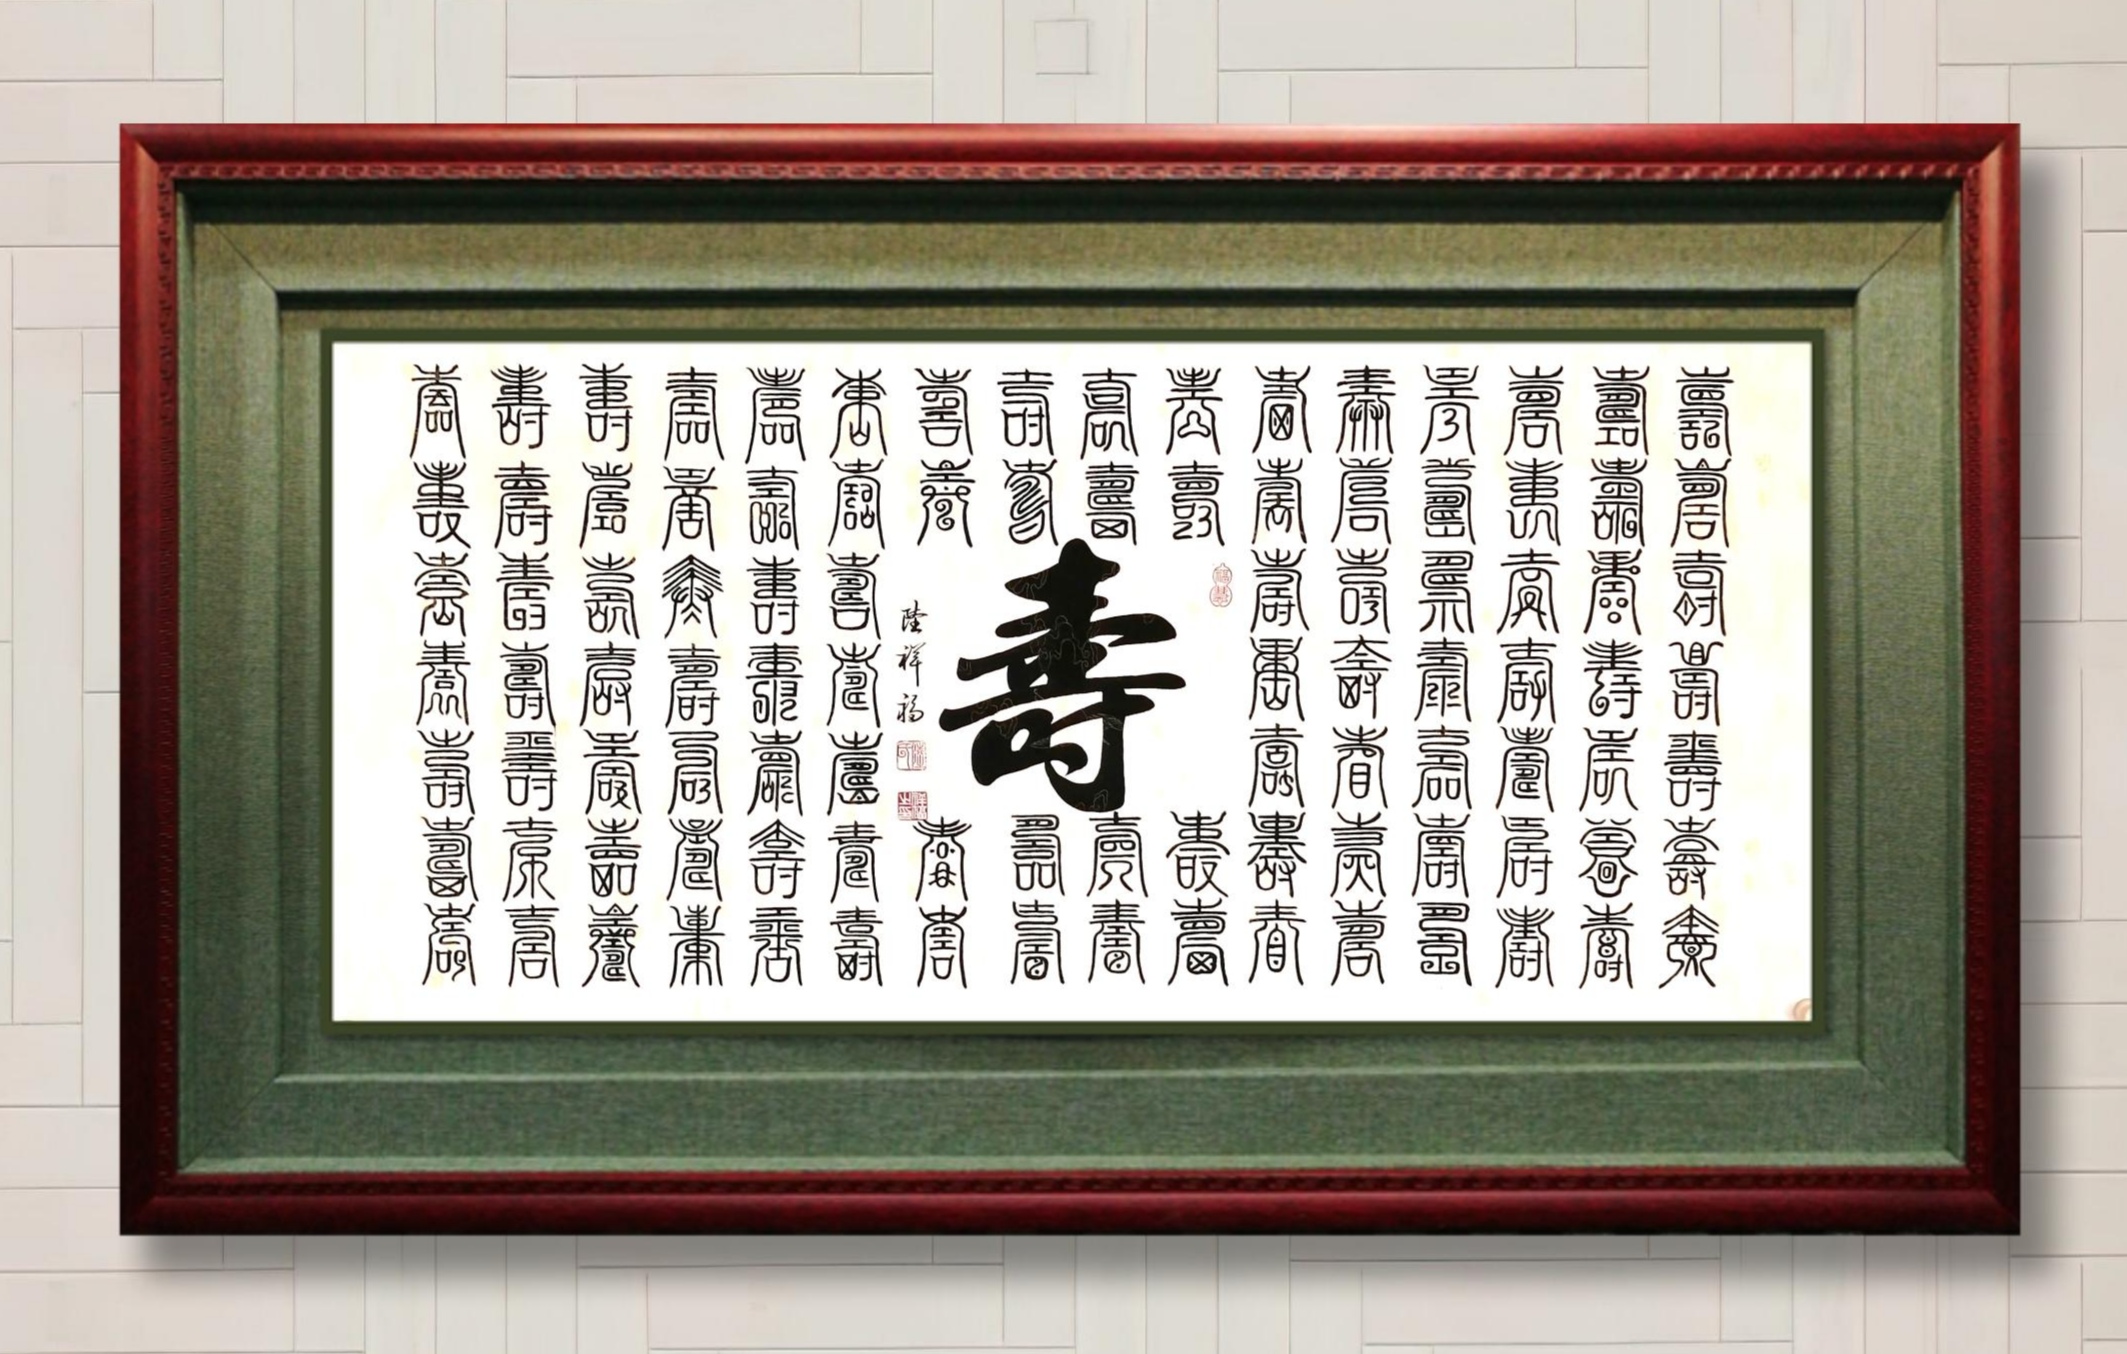 壽壽壽壽壽壽壽
壽壽壽壽壽壽壽
壽壽壽壽壽壽壽
壽壽壽壽壽壽壽
壽壽壽壽壽壽壽
壽壽壽壽壽壽壽
壽壽
壽壽
壽壽
壽壽
壽
陸祥福
壽壽
壽壽
壽壽
壽壽
壽壽壽壽壽壽壽
壽壽壽壽壽壽壽
壽壽壽壽壽壽壽
壽壽壽壽壽壽壽
壽壽壽壽壽壽壽
壽壽壽壽壽壽壽